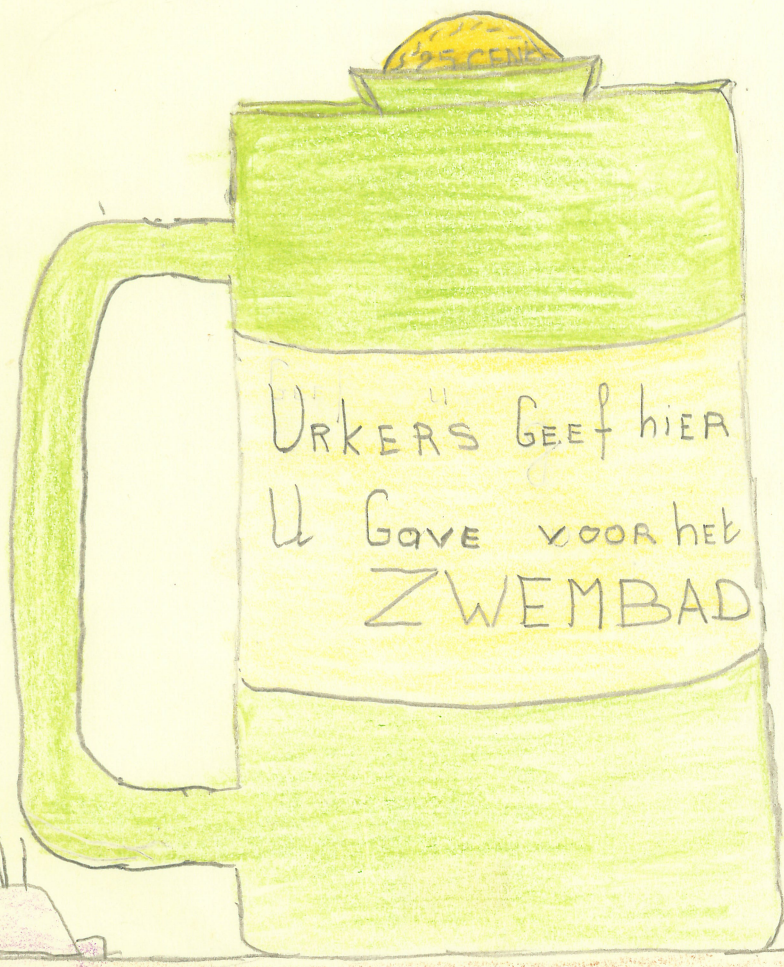 25 CENT
URKERS GEEf hiER
U GavE vOOR hEt
ZWEMBAD